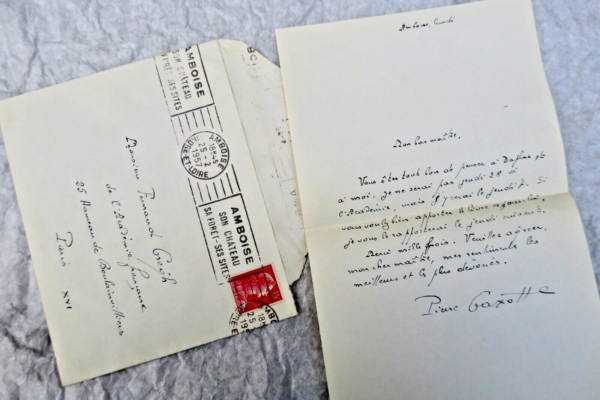 AMBOISE
SON CHÂTEAU
SA FORÊT-SES SITES
AMBOISE
18H45
25-2
1957
INDRE-ET-LOIRE
AMBOISE
SON CHÂTEAU
SA FORÊT-SES SITES
Monsieur Fernand Gregh
de l'Académie française
25 Hameau de Boulainvilliers
Paris XVI
Amboise, lundi
Mon bon maître,
Vous êtes trop bon de penser à Daphné et
à moi. Je ne serai pas jeudi 28 à
l'Académie, mais j'y serai le jeudi 7. Si
vous voulez bien apporter le livre
je vous le rapporterai le jeudi suivant.
Merci mille fois. Veuillez agréer,
mon cher maître, mes sentiments les
meilleurs et les plus dévoués.
Pierre Gaxotte